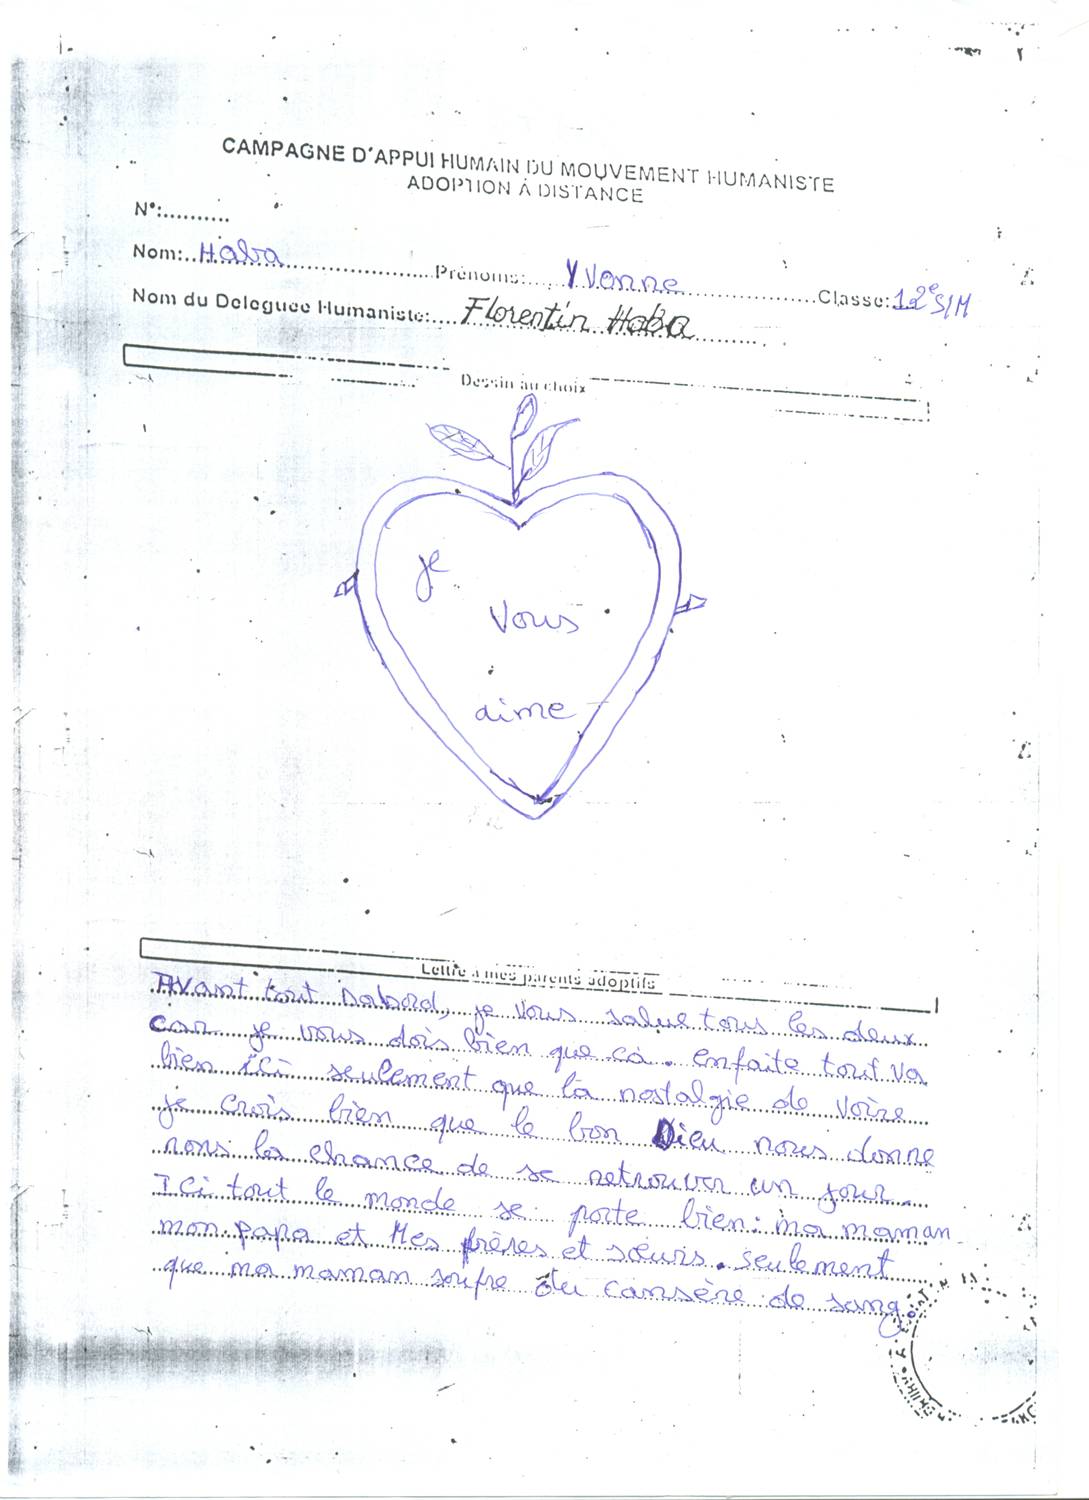 CAMPAGNE D'APPUI HUMAIN DU MOUVEMENT HUMANISTE
ADOPTION À DISTANCE
N°:..........
Nom: Haba Prénoms: Yvonne Classe: 12e S/M
Nom du Deleguee Humaniste: Florentin Haba
Dessin au choix
je
Vous
aime
Lettre a mes parents adoptifs
Avant tout dabord, je vous salue tous les deux
car je vous dois bien que ca. enfaite tout va
bien ici seulement que la nostalgie de voire
je crois bien que le bon Dieu nous donne
rons la chance de se retrouver un jour.
Ici tout le monde se porte bien: ma maman
mon papa et Mes frères et sœurs. seulement
que ma maman soufre du cansère de sang.